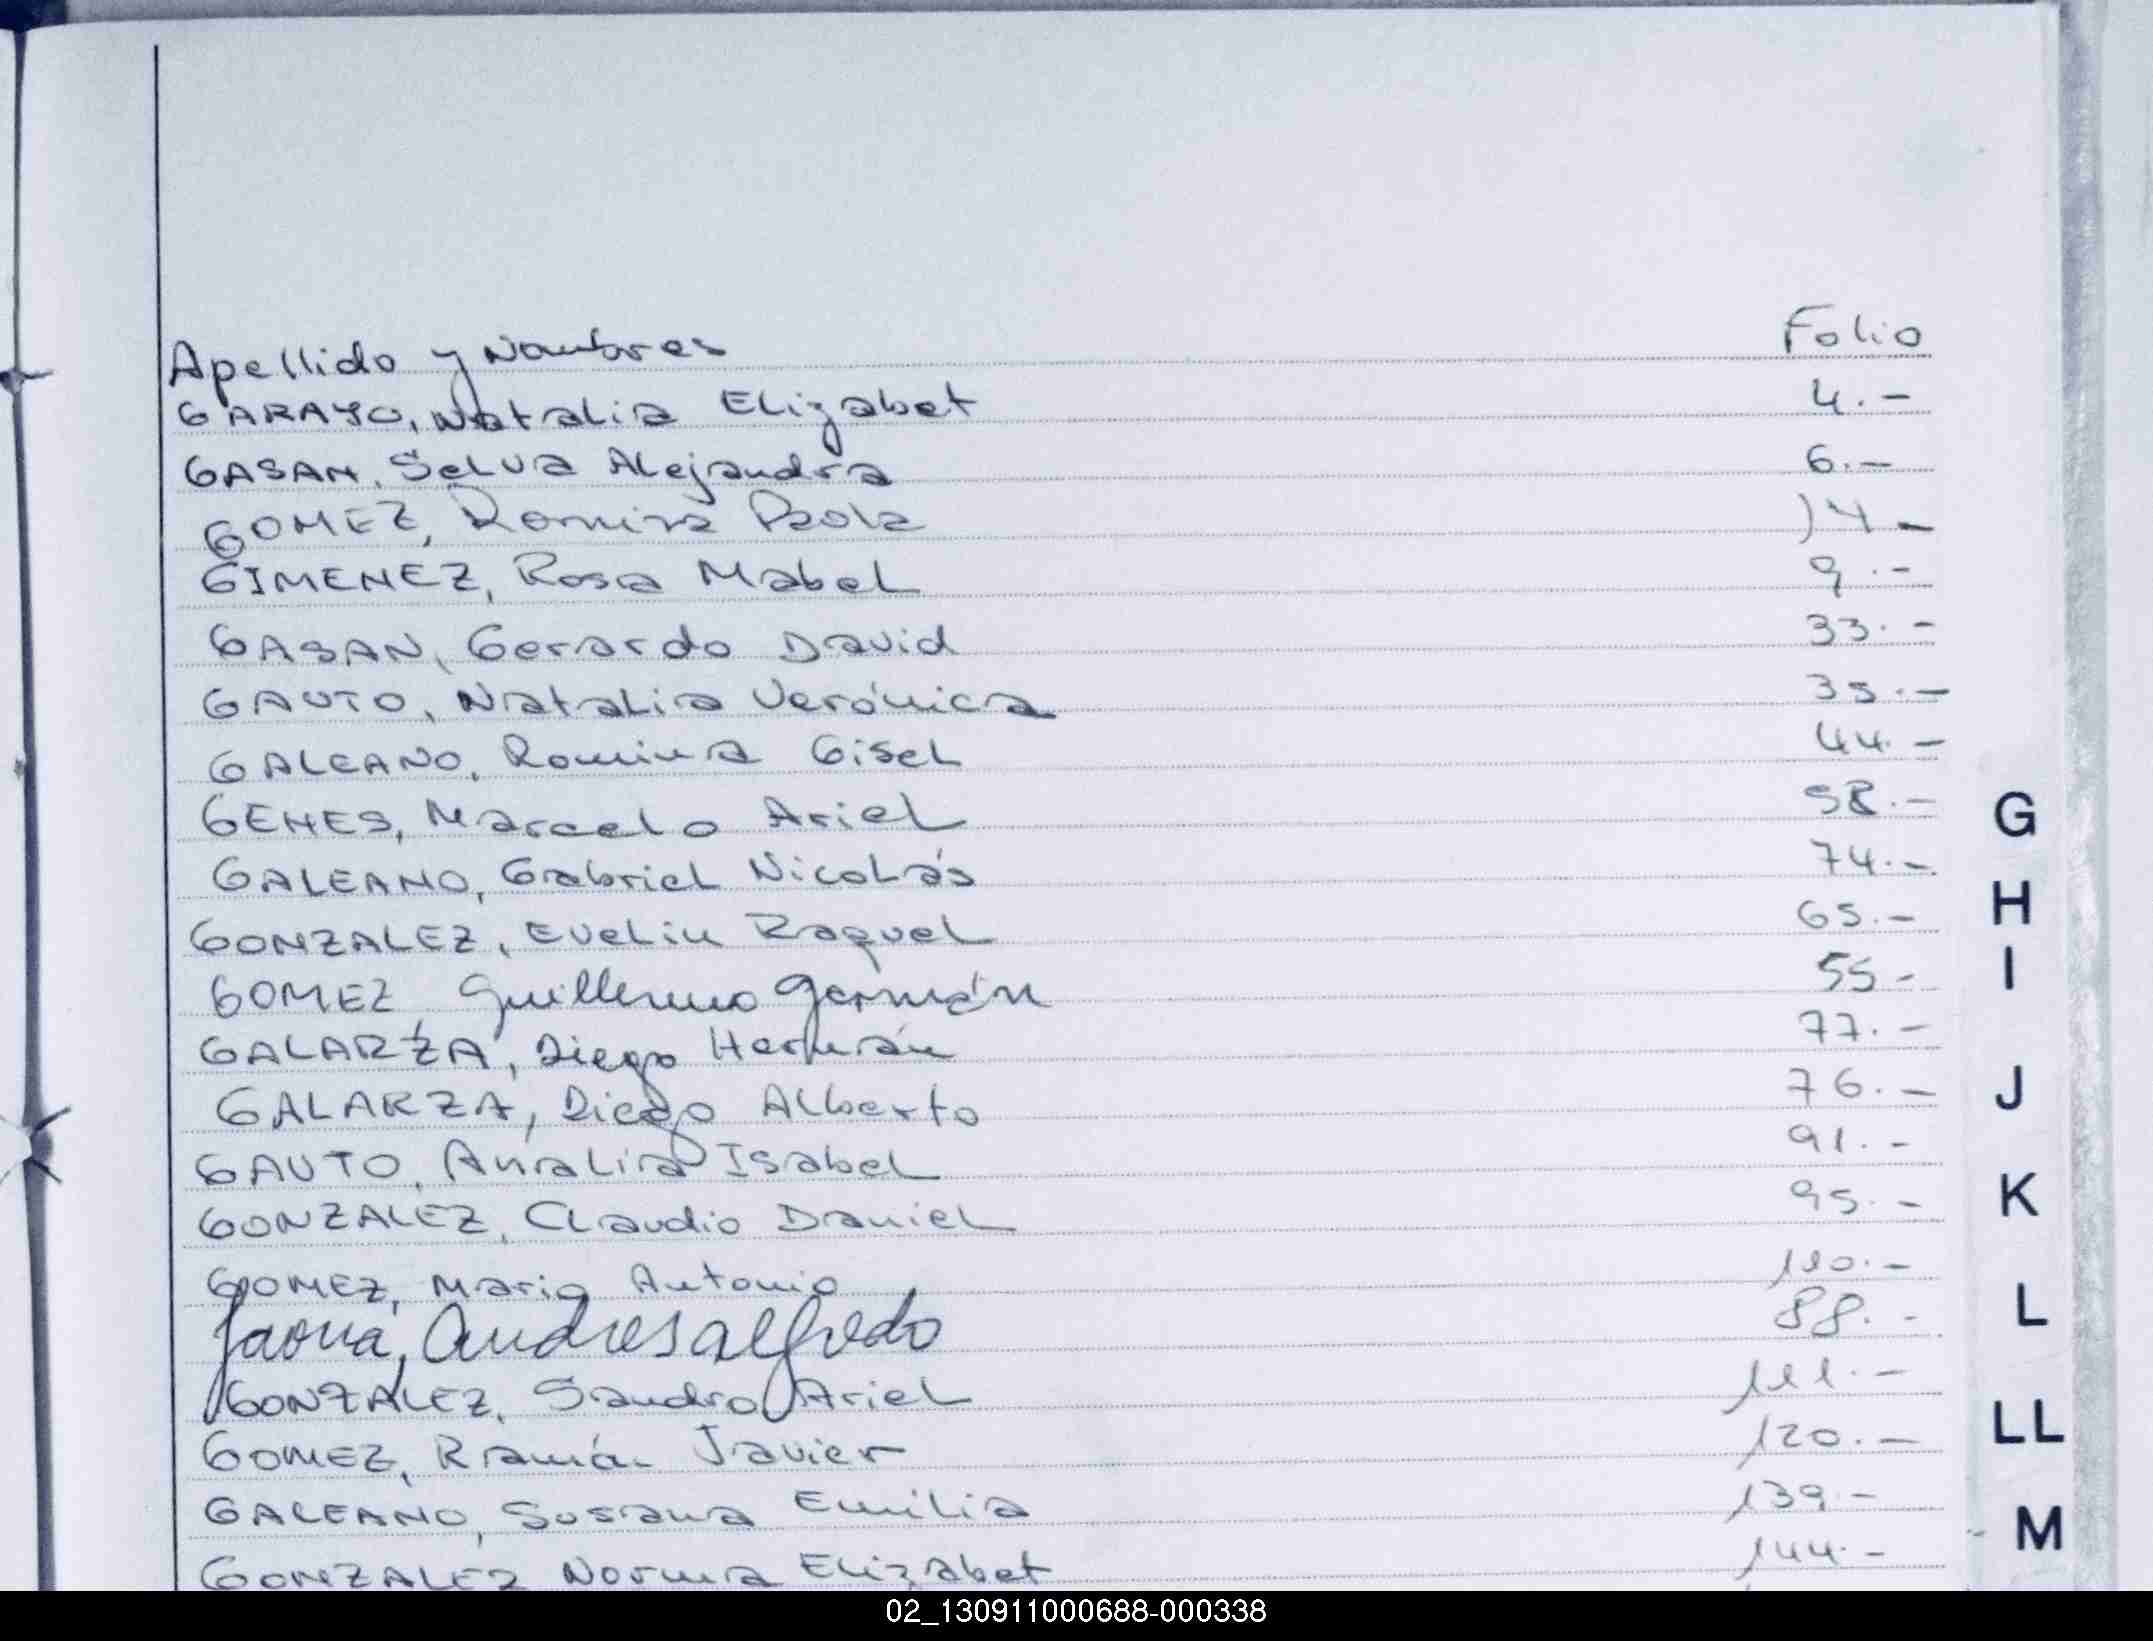 Apellido y Nombres Folio
GARAYO, Natalia Elizabet 4.-
GASAN, Selva Alejandra 6.-
GOMEZ, Romina Paola 14-
GIMENEZ, Rosa Mabel 9.-
GASAN, Gerardo David 33.-
GAUTO, Natalia Verónica 35.-
GALEANO, Romina Gisel 44.-
GENES, Marcelo Ariel 58.-
GALEANO, Gabriel Nicolás 74.-
GONZALEZ, Evelin Raquel 65.-
GOMEZ Guillermo Germán 55-
GALARZA, Diego Hernán 77.-
GALARZA, Diego Alberto 76.-
GAUTO, Analia Isabel 91.-
GONZALEZ, Claudio Daniel 95.-
GOMEZ, Mario Antonio 110.-
Gaona, Andres Alfredo 88.-
GONZALEZ, Sandro Ariel 111.-
GOMEZ, Ramón Javier 120.-
GALEANO, Susana Emilia 139.-
GONZALEZ Norma Elizabet 144.-
G
H
I
J
K
L
LL
M
02_130911000688-000338